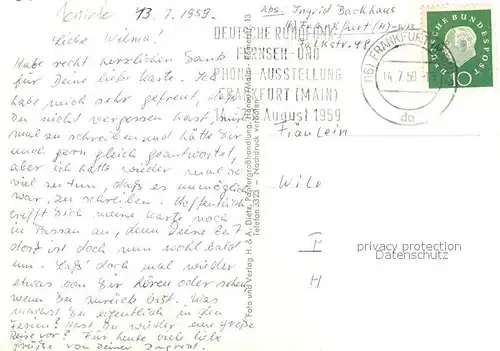 13.7.1959.
Liebe Wilma!
Habe recht herzlichen Dank
für Deine liebe Karte. Ich
habe mich sehr gefreut, daß
Du nicht vergessen hast, mir
mal zu schreiben und hätte Dir
auch gern gleich geantwortet,
aber ich hatte wieder mal so
viel zu tun, daß es unmöglich
war, zu schreiben. Hoffentlich
trifft Dich meine Karte noch
in Passau an, denn Deine Zeit
dort ist doch nun wohl bald
um. Laß' doch mal wieder
etwas von Dir hören oder sehen,
wenn Du zurück bist. Was
machst Du eigentlich in den
Ferien? Hast Du wieder eine große
Reise vor? Für heute viele liebe
Grüße von Deiner Ingrid.
Foto und Verlag H. & A. Dietz, Papiergroßhandlung, Hanau/Main, 13
Telefon 3323 - Nachdruck verboten
Abs. Ingrid Backhaus
(16) Frankfurt (M)-W13
Falkstr. 48
DEUTSCHE RUNDFUNK
FERNSEH- UND
PHONO-AUSSTELLUNG
FRANKFURT (MAIN)
August 1959
(16) FRANKFURT
14.7.59
da
DEUTSCHE BUNDESPOST
10
Fräulein
H
Datenschutz
privacy protection